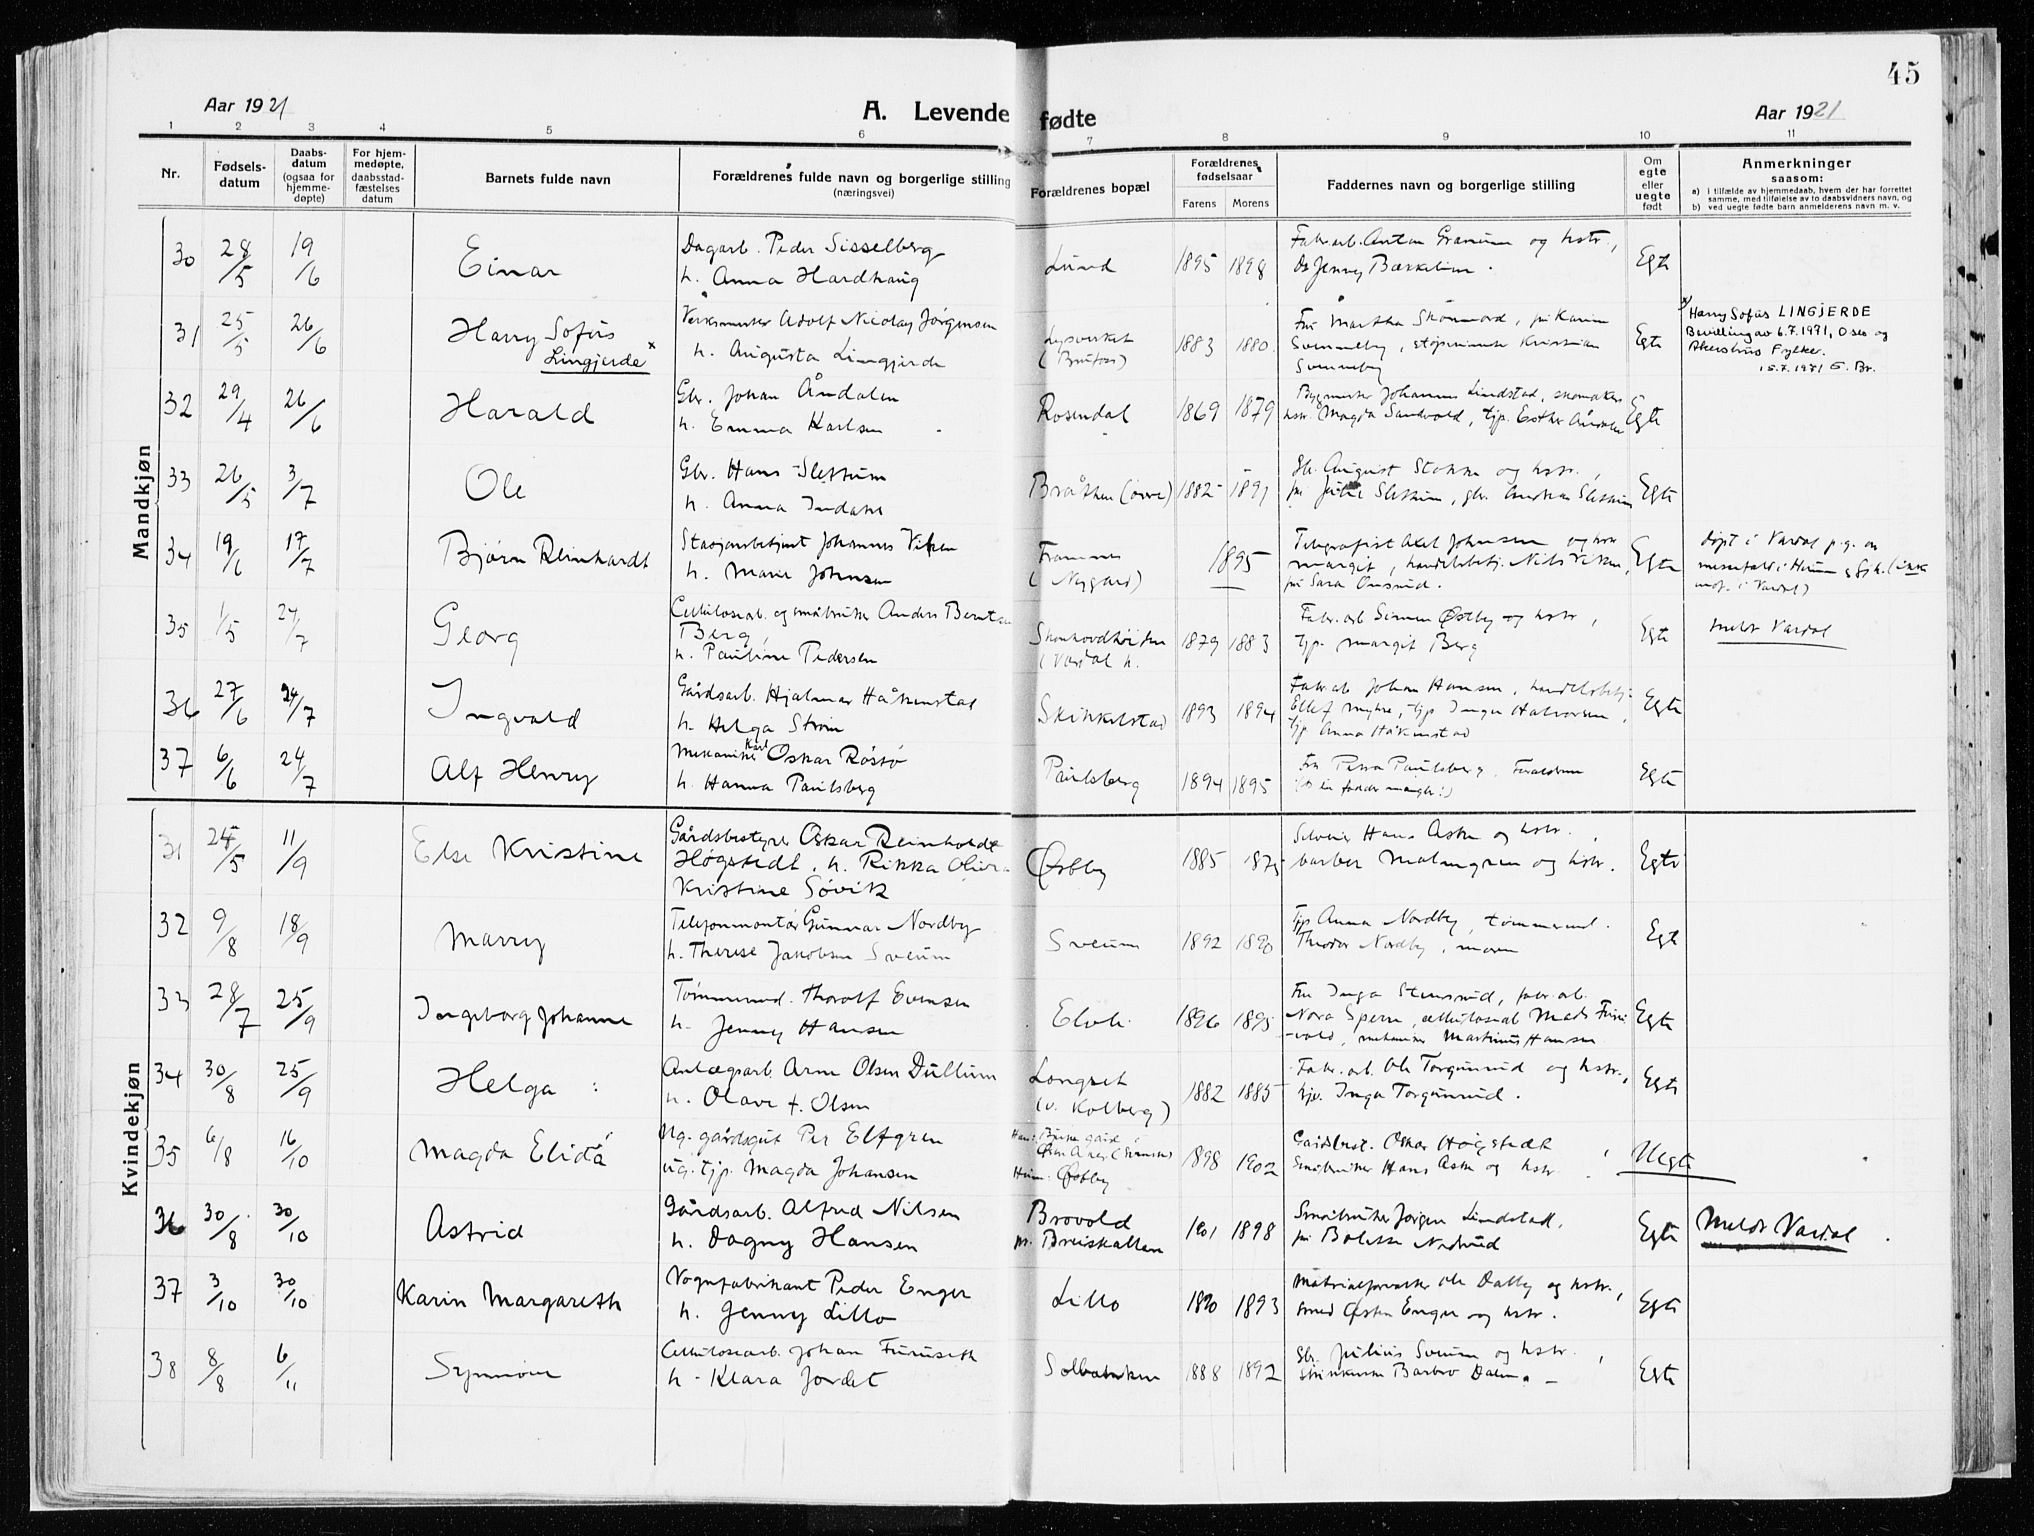 45
Aar 1921
A. Levende fødte
Aar 1921
1 2 3 4 5 6 7 8 9 10 11
Nr.
Fødsels-
datum
Daabs-
datum
(ogsaa for
hjemme-
døpte)
For hjem-
medøpte,
daabsstad-
fæstelses
datum
Barnets fulde navn
Forældrenes fulde navn og borgerlige stilling
(næringsvei)
Forældrenes bopæl
Forældrenes
fødselsaar
Farens Morens
Faddernes navn og borgerlige stilling
Om
egte
eller
uegte
født
Anmerkninger
saasom:
a) i tilfælde av hjemmedaab, hvem der har forrettet
samme, med tilføielse av to daabsvidners navn, og
b) ved uegte fødte barn anmelderens navn m. v.
Mandkjøn
30 28/5 19/6 Einar Dagarb. Peder Sisselberg
h. Anna Hardhaug
Lund 1895 1898 Fabr.arb. Anton Granum og hstr.,
Jenny Bækkelin. Egte
31 25/5 26/6 Harry Sofus
Lingjerde x
Verksmester Adolf Nicolay Jørgensen
h. Augusta Lingjerde
Lysverket 1883 1880 Fru Martha Skonnord, frk Karin
Sommeby, Kristian
Sommeby
Egte
x/ Harry Sofus LINGJERDE
Bevilling av 6.7.1971, Oslo og
Akershus Fylker.
15.7.1971 G. Br.
32 29/4 26/6 Harald Gbr. Johan Åndalen
h. Emma Karlsen
Rosendal 1869 1879 Bygmester Johannes Lindstad, skomakers
hstr. Magda Sandvold, tjp. Esther Åndalen
Egte
33 26/5 3/7 Ole Gbr. Hans Slettum
h. Anna Indahl
Bråthen (övre) 1882 1891 Gbr. August Stokke og hstr.,
Julie Slettum, gbr. Andreas Slettum
Egte
34 19/6 17/7 Bjørn Reinhardt Stasjonsbetjent Johannes Viken
h. Marie Johnsen
Framnes
(Nygaard)
1895 Telegrafist Axel Johnsen og hstr
Margit, handelsbetj. Nils Viken,
frk Sara Onsrud.
Egte
døpt i Vardal p.g. av
messefald i Hunn (ikke
indf. i Vardal)
35 1/5 24/7 Georg Celluloseab. og småbruker Anders Berntsen
Berg,
h. Pauline Pedersen
(Vardal h. 1879 1883 Fabr.arb Simen Østby og hstr,
tjp. Margit Berg
Egte
Meldt Vardal
36 27/6 24/7 Ingvald Gårdsarb. Hjalmar Håkenstad
h. Helga Strøm
Skinkelstad 1893 1894 Fabr.ab Johan Hansen, handelsbetj.
Ellef Myhre, tjp Inga Halvorsen,
tjp. Anna Håkenstad
Egte
37 6/6 24/7 Alf Henry Mekaniker Karl Oskar Røstø
h. Hanna Paulsberg
Paulsberg 1894 1895 Fru Petra Paulsberg. Forældrene
(to fadder mangler!)
Egte
Kvindekjøn
31 24/5 11/9 Else Kristine Gårdsbestyrer Oskar Reinholdt
Høgstedt, h. Rikka Oliva
Kristine Søvik
Østby 1885 1875 Hans Aske og hstr.,
barber Malmgren og hstr.
Egte
32 9/8 18/9 Marry Telefonmontör Gunnar Nordby
h. Therese Jakobsen Sveum
Sveum 1892 1890 Tjp Anna Nordby, tømmermd.
Theodor Nordby, moren
Egte
33 28/7 25/9 Ingeborg Johanne Tømmermd. Thorolf Evensen
h. Jenny Hansen
1896 1895 Fru Inga Stensrud, fabr.arb.
Nora Speru, cellulosearb Mads Furu-
-vold, mekaniker Martinius Hansen
Egte
34 30/8 25/9 Helga Anlægsarb. Arne Olsen Dullum
h. Olave f. Olsen
Longset
(v. Kolberg)
1882 1885 Fabr.arb. Ole Torgunrud og hstr.,
tjp. Inga Torgunrud.
Egte
35 6/8 16/10 Magda Elida Ug. gårdsgut Per Elfgren
ug. tjp. Magda Johansen
Hun: Østby
1898 1902 Gårdbest. Oskar Høgstedt
Småbruker Hans Aske og hstr.
Uegte
36 30/8 30/10 Astrid Gårdsarb. Alfred Nilsen
h. Dagny Hansen
Brovold
pr. Breiskallen
1901 1898 Småbruker Jørgen Lindstad,
frk Bolette Nedrud
Egte Meldt Vardal
37 3/10 30/10 Karin Margareth Vognfabrikant Peder Enger
h. Jenny Lillo
Lillo 1890 1893 Materialforvalter Ole Dalby og hstr,
smed Østen Enger og hstr.
Egte
38 8/8 6/11 Synnøve Cellulosearb. Johan Furuseth
h. Klara Jordet
Solbakken 1888 1892 Gbr. Julius Sveum og hstr.,
Barbro Dalen.
Egte